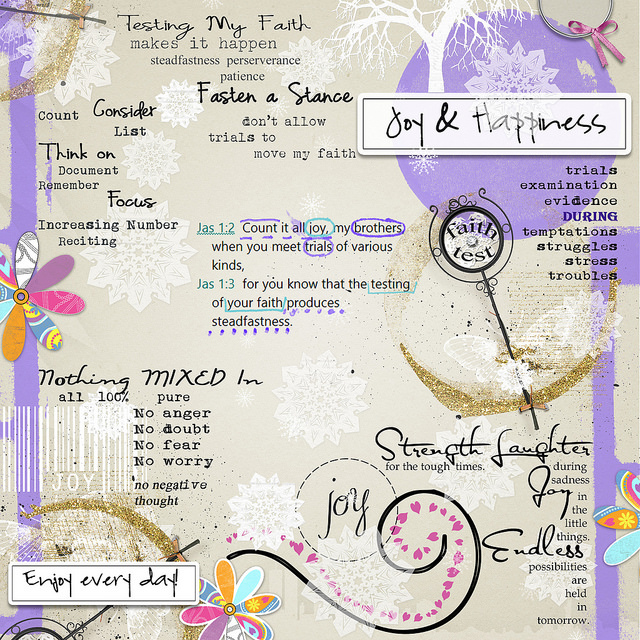 Testing My Faith
makes it happen
steadfastness perserverance
patience
Fasten a Stance
don't allow
trials to
move my faith
Count Consider
List
Think on
Document
Remember
Focus
Increasing Number
Reciting
Joy & Happiness
trials
examination
evidence
DURING
temptations
struggles
stress
troubles
faith
test
Jas 1:2 Count it all joy, my brothers
when you meet trials of various
kinds,
Jas 1:3 for you know that the testing
of your faith produces
steadfastness.
Nothing MIXED In
all 100% pure
No anger
No doubt
No fear
No worry
no negative
thought
JOY
joy
Strength Laughter
for the tough times.
during
sadness
Joy in
the
little
things.
Endless
possibilities
are
held
in
tomorrow.
Enjoy every day!